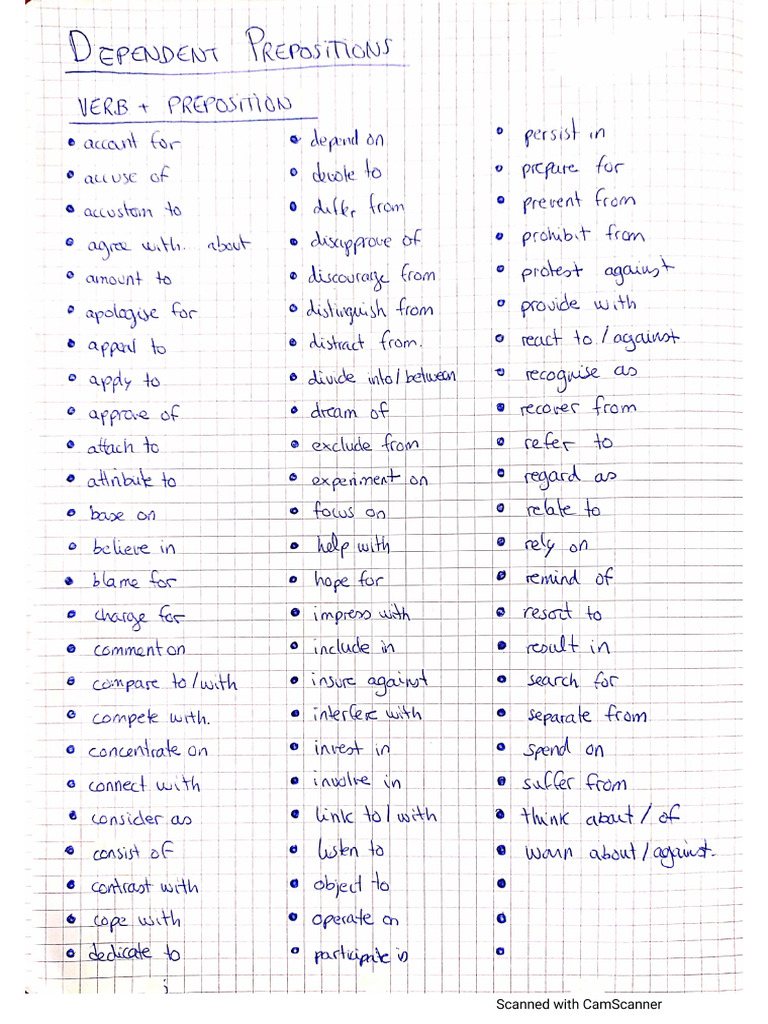 DEPENDENT PREPOSITIONS
VERB + PREPOSITION
• accant for
• accuse of
• accustom to
• agree with. about
• amount to
• apologise for
• appeal to
• apply to
• approve of
• attach to
• attribute to
• base on
• believe in
• blame for
• charge for
• comment on
• compare to/with
• compete with.
• concentrate on
• connect with
• consider as
• consist of
• contrast with
• cope with
• dedicate to
• depend on
• devote to
• differ from
• disapprove of
• discourage from
• distinguish from
• distract from.
• divide into/between
• dream of
• exclude from
• experiment on
• focus on
• help with
• hope for
• impress with
• include in
• insure against
• interfere with
• invest in
• involve in
• link to/with
• listen to
• object to
• operate on
• participate in
• persist in
• prepare for
• prevent from
• prohibit from
• protest against
• provide with
• react to/against
• recognise as
• recover from
• refer to
• regard as
• relate to
• rely on
• remind of
• resort to
• result in
• search for
• separate from
• spend on
• suffer from
• think about/of
• warn about/against.
•
•
•
Scanned with CamScanner